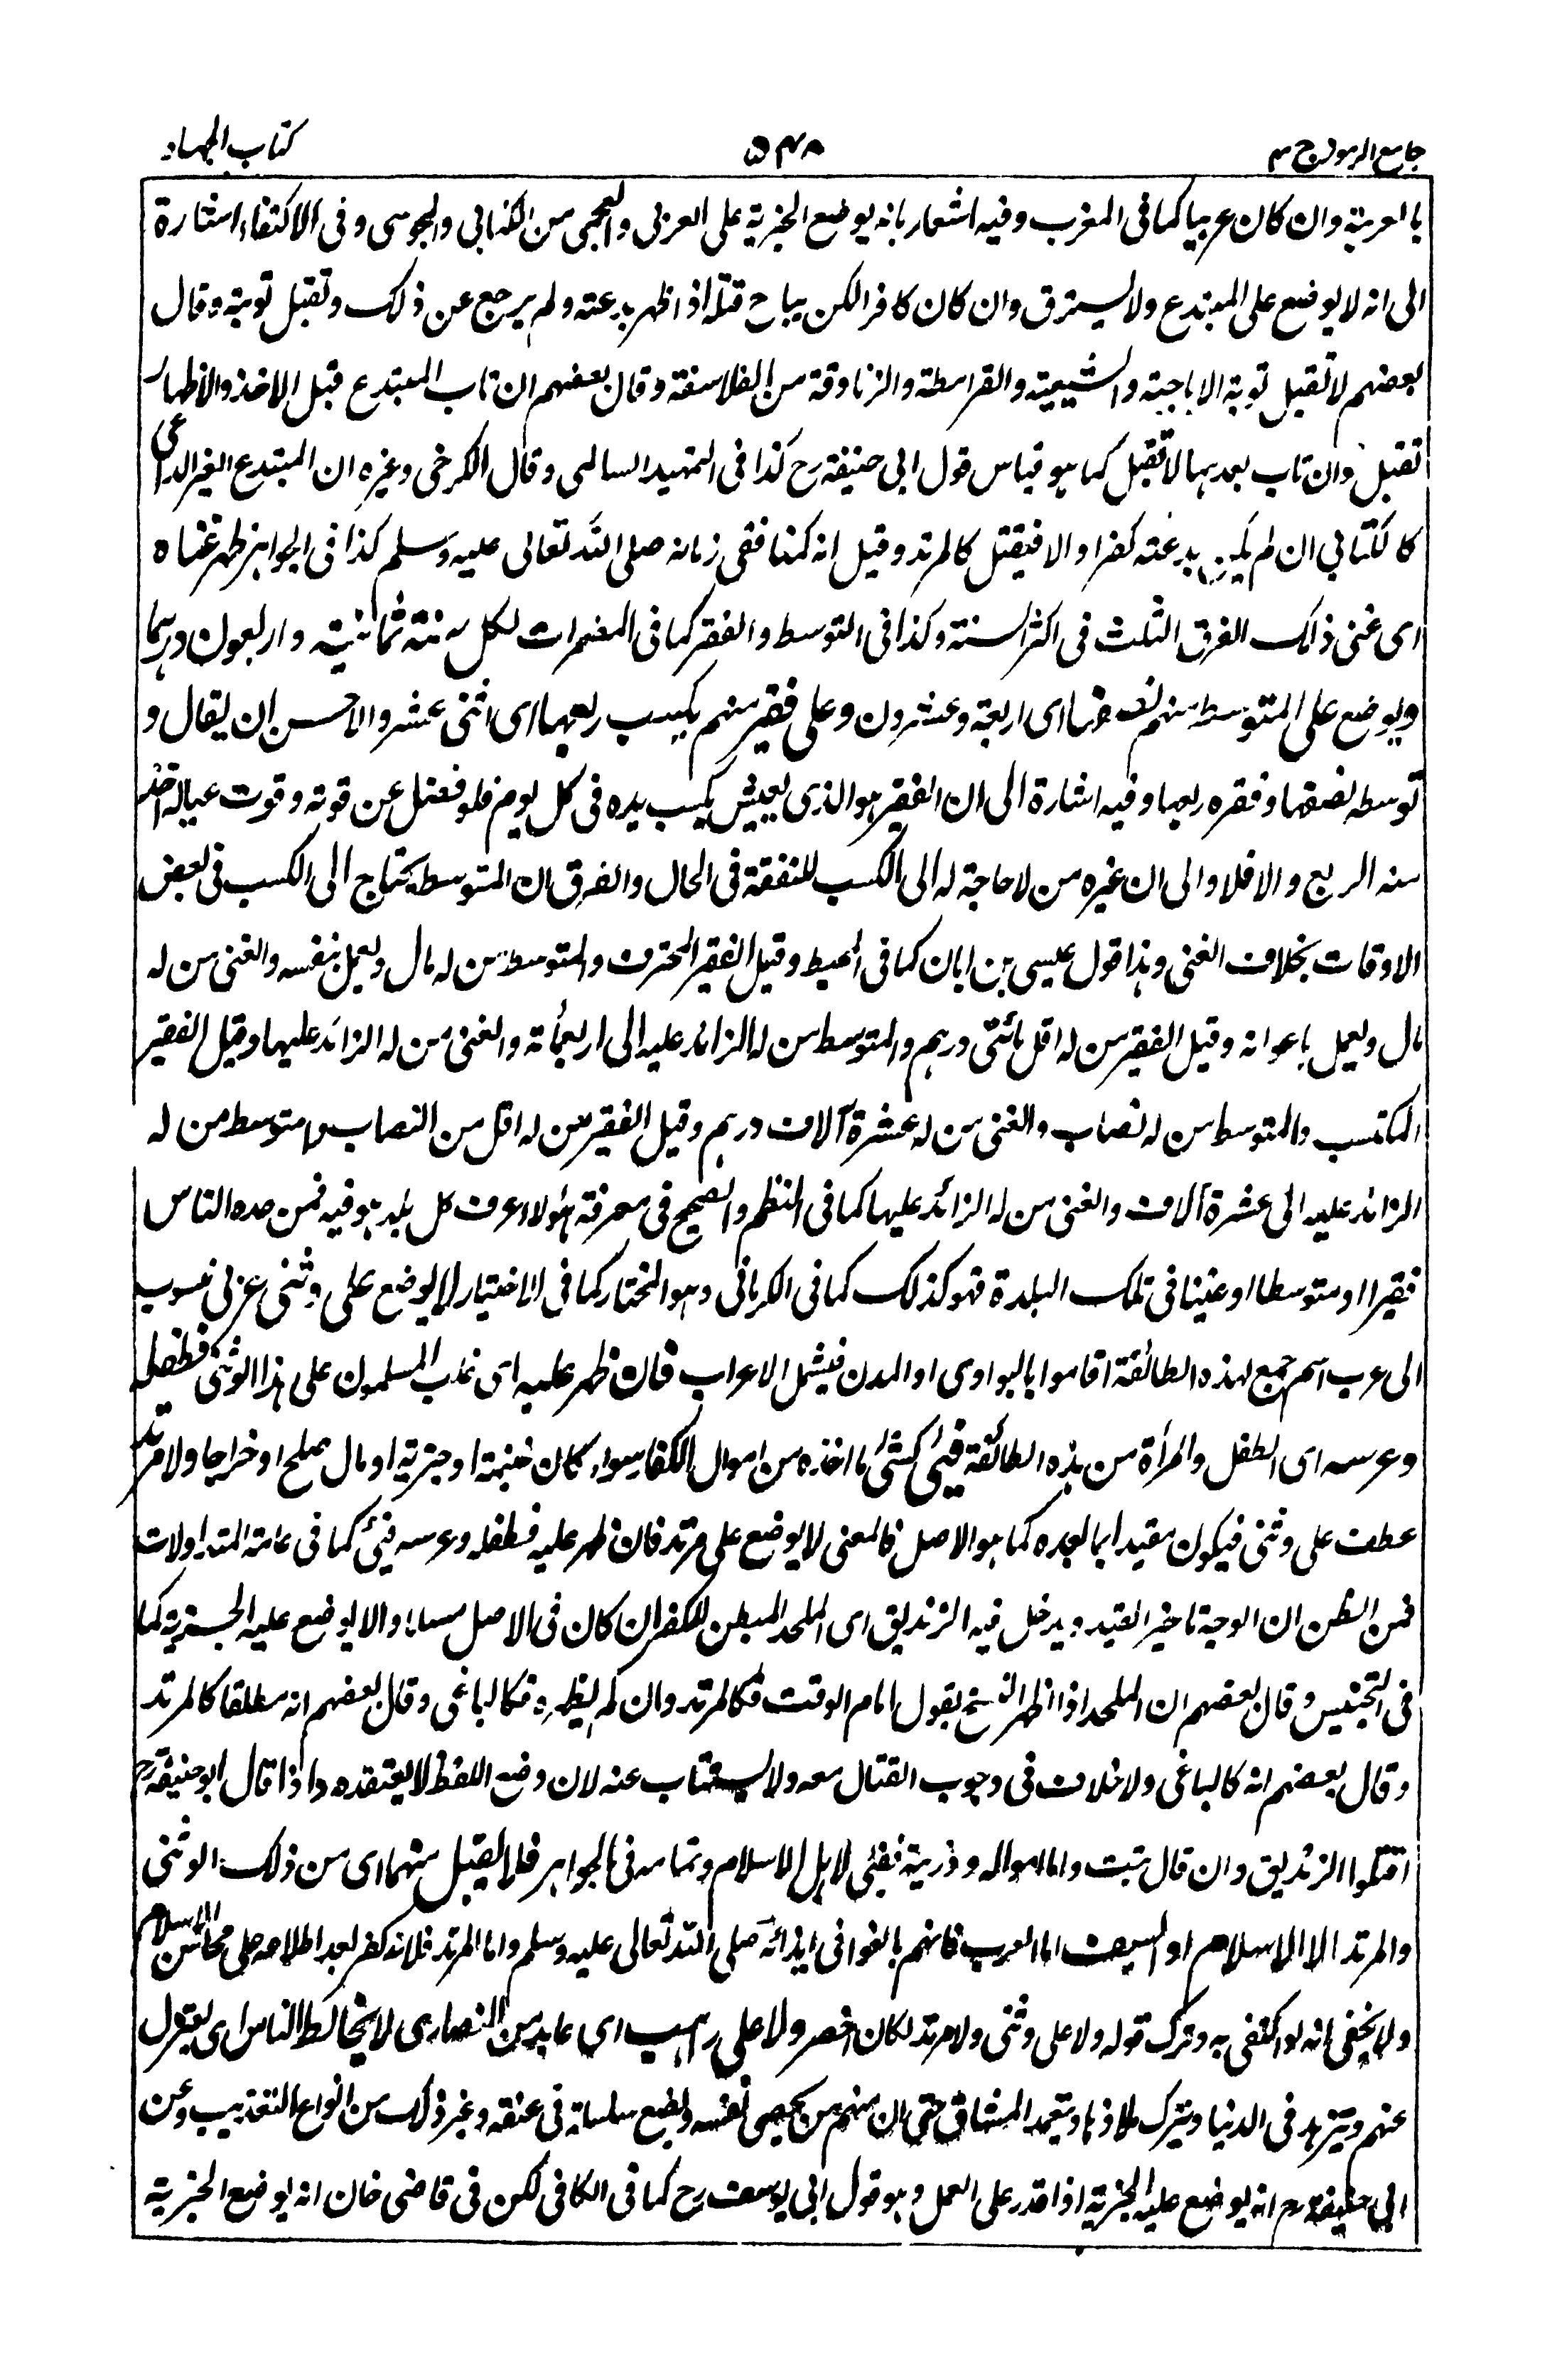 جامع الرموز ج ٣
٥٣٨
كتاب الجهاد
بالعربية وان كان عربيا كما فى المغرب وفيه اشعار بانه يوضع الجزية على العربى والعجمى من الكتابي والمجوسى وفى الاكتفاء اشارة
الى انه لا يوضع على المبتدع ولا يسترق وان كان كافرا لكن يباح قتله اذا ظهر بدعته ولم يرجع عن ذلك وتقبل توبته وقال
بعضهم لا تقبل توبة الاباحية والشيعية والقرامطة والزنادقة من الفلاسفة وقال بعضهم ان تاب المبتدع قبل الاخذ والاظهار
تقبل وان تاب بعدهما لا تقبل كما هو قياس قول ابي حنيفة رح كذا فى التمهيد السالمى وقال الكرخى وغيره ان المبتدع الغير الداعى
كالكتابي ان لم يكن بدعته كفرا والا فيقتل كالمرتد وقيل انه كمنافقى زمانه صلى الله تعالى عليه وسلم كذا فى الجواهر ظهر غناه
اى غنى ذلك الفرق الثلث فى اكثر السنة وكذا فى التوسط والفقر كما فى المضمرات لكل سنة ثمانية واربعون درهما
ويوضع على المتوسط منهم نصفها اى اربعة وعشرون وعلى فقير منهم يكسب ربعها اى اثنى عشر والاحسن ان يقال و
توسطه نصفها وفقره ربعها وفيه اشارة الى ان الفقير هو الذى يعيش بكسب يده فى كل يوم فلو فضل عن قوته وقوت عياله اخذ
منه الربع والا فلا والى ان غيره من لا حاجة له الى الكسب للنفقة فى الحال والفرق ان المتوسط يحتاج الى الكسب فى بعض
الاوقات بخلاف الغنى وهذا قول عيسى بن ابان كما فى المحيط وقيل الفقير المحترف والمتوسط من له مال ويعمل بنفسه والغنى من له
مال ويعمل باعوانه وقيل الفقير من له اقل مائتى درهم والمتوسط من له الزائد عليه الى اربعمائة والغنى من له الزائد عليها وقيل الفقير
المكتسب والمتوسط من له نصاب والغنى من له عشرة آلاف درهم وقيل الفقير من له اقل من النصاب والمتوسط من له
الزائد عليه الى عشرة آلاف والغنى من له الزائد عليها كما فى النظم والصحيح فى معرفة هؤلاء عرف كل بلد هو فيه فمن عده الناس
فقيرا او متوسطا او غنيا فى تلك البلدة فهو كذلك كما فى الكرمانى وهو المختار كما فى الاختيار لا يوضع على وثنى عربى منسوب
الى عرب اسم جمع لهذه الطائفة اقاموا بالبوادى او المدن فيشمل الاعراب فان ظهر عليه اى غلب المسلمون على هذا الوثنى فطفله
وعرسه اى الطفل والمرأة من هذه الطائفة فئ كشئ ما اخذه من اموال الكفار سواء كان غنيمة او جزية او مال صلح او خراجا ولا مرتد
عطف على وثنى فيكون مقيدا بما بعده كما هو الاصل فالمعنى لا يوضع على مرتد فان ظهر عليه فطفله وعرسه فئ كما فى عامة المتداولات
فمن الظن ان الوجه تاخير القيد ويدخل فيه الزنديق اى الملحد المبطن للكفر ان كان فى الاصل مسلما والا يوضع عليه الجزية كما
فى التجنيس وقال بعضهم ان الملحد اذا اظهر بقول امام الوقت فكالمرتد وان لم يظهره فكالباغى وقال بعضهم انه مطلقا كالمرتد
وقال بعضهم انه كالباغى ولا خلاف فى وجوب القتال معه ولا يستتاب عنه لان وضع اللفظ لا يعتقده واذا قال ابو حنيفة رح
اقتلوا الزنديق وان قال تبت واما امواله وذريته فئى لاهل الاسلام وتمامه فى الجواهر فلا يقبل منهما اى من ذلك الوثنى
والمرتد الا الاسلام او السيف اما العرب فانهم بالغوا فى ايذائه صلى الله تعالى عليه وسلم واما المرتد فلانه كفر بعد اطلاعه على محاسن الاسلام
ولا يخفى انه لو اكتفى به وترك قوله ولا على وثنى ولا مرتد لكان اخصر ولا على راهب اى عابد من النصارى لا يخالط الناس اى يعتزل
عنهم ويتزهد فى الدنيا ويترك ملاذها ويتعمد المشاق حتى ان منهم من يخصى نفسه ويضع سلسلة فى عنقه وغير ذلك من انواع التعذيب وعن
ابي حنيفة رح انه يوضع عليه الجزية اذا قدر على العمل وهو قول ابى يوسف رح كما فى الكافى لكن فى قاضى خان انه يوضع الجزية